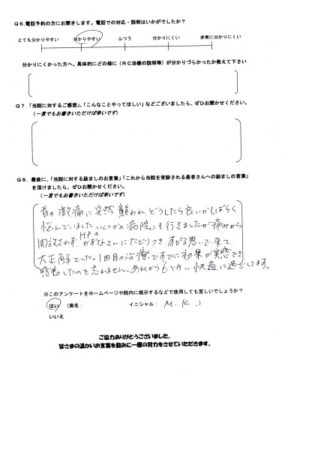 Q6.電話予約の方にお聞きします。電話での対応・説明はいかがでしたか?
とても分かりやすい 分かりやすい ふつう 分かりにくい 非常に分かりにくい
分かりにくかった方へ、具体的にどの様に(RC治療の説明等)が分かりづらかったか教えて下さい
Q7.「当院に対するご感想」、「こんなことやってほしい」などございましたら、ぜひお書きください。
(一言でもお書きいただければ幸いです)
Q8.最後に、「当院に対する励ましのお言葉」「これから当院を受診される患者さんへの励ましの言葉」
を頂けましたら、ぜひお書きください。
(一言でもお書きいただければ幸いです)
首の激痛に突然襲われ、どうしたら良いかしばらく
悩んでいました。いくつかの病院にも行きましたが痛みから
開放されず、HPの がおさんにたどりつき、わらう思いで来て
大正解でした。1回目の治療ですでに効果が実感でき
感動したのを忘れません。あれから6ヶ月、快適に過ごしてます。
※このアンケートをホームページや院内に掲示するなどで使用しても宜しいでしょうか?
はい (実名: イニシャル: M.K.)
いいえ
ご協力ありがとうございました。
皆さまの温かいお言葉を励みに一層の努力をさせていただきます。